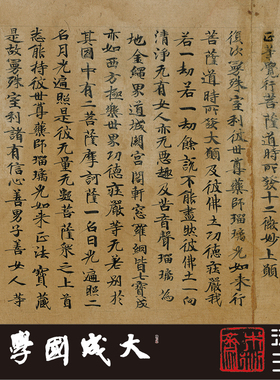 正等覺行菩薩道時所發十二微妙上願
復次曼殊室利彼世尊藥師瑠璃光如來行
菩薩道時所發大願及彼佛土功德莊嚴我
若一劫若一劫餘說不能盡然彼佛土一向
清淨无有女人亦无惡趣及苦音聲瑠璃為
地金繩界道城闕宮閣軒窓羅網皆七寶成
亦如西方極樂世界功德莊嚴等无差別於
其國中有二菩薩摩訶薩一名日光遍照二
名月光遍照是彼无量无數菩薩眾之上首
悉能持彼世尊藥師瑠璃光如來正法寶藏
是故曼殊室利諸有信心善男子善女人等
大成國學